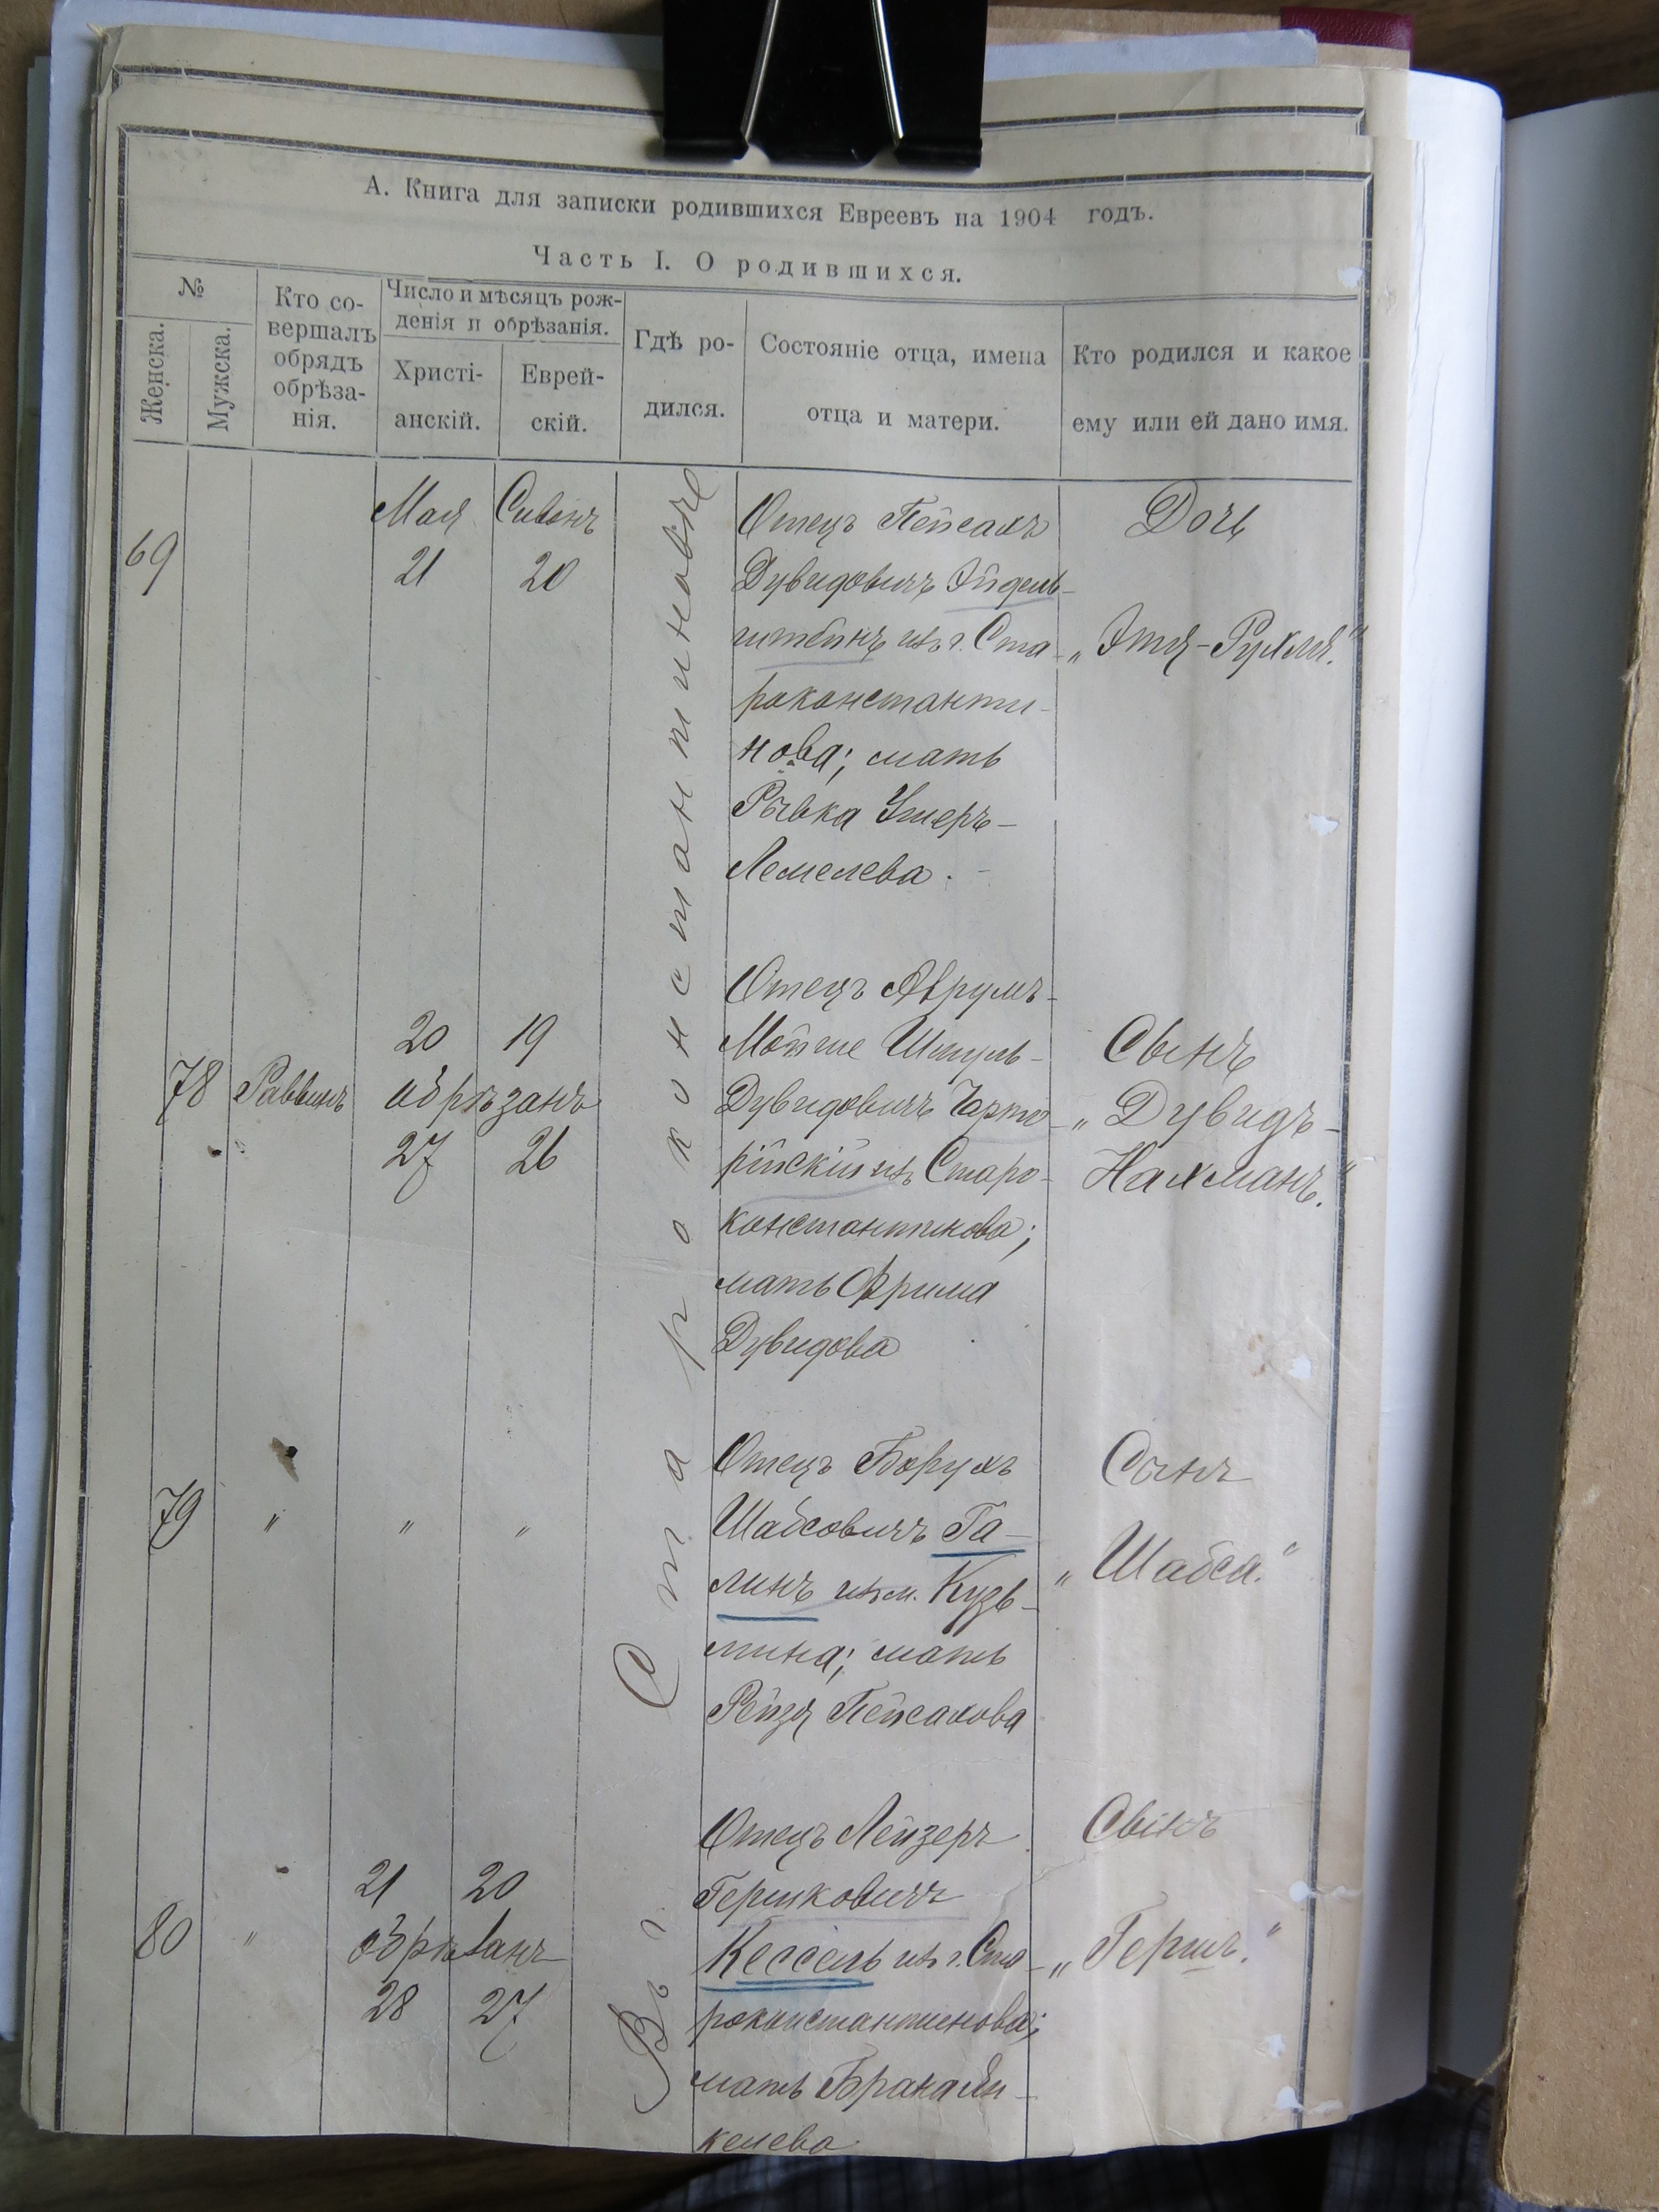 А. Книга для записки родившихся Евреевъ на 1904 годъ.
Часть I. О родившихся.
№
Женска.
Мужска.
Кто со-
вершалъ
обрядъ
обрѣза-
нія.
Число и мѣсяцъ рож-
денія и обрѣзанія.
Христі-
анскій.
Еврей-
скій.
Гдѣ ро-
дился.
Состояніе отца, имена
отца и матери.
Кто родился и какое
ему или ей дано имя.
Въ г. Староконстантиновѣ
69
Мая Сивонъ
21 20
Отецъ Пейсахъ
Дувидовичъ Эйдель-
штейнъ изъ г. Ста-
роконстанти-
нова; мать
Рывка Умеръ-
Лемелева.
Дочь
„Этя-Рухля."
78 Раввинъ
20 19
обрѣзанъ
27 26
Отецъ Аврумъ-
Мойше Шмуль-
Дувидовичъ Чарто-
рійскій изъ Старо-
константинова;
мать Фрима
Дувидова
Сынъ
„Дувидъ-
Нахманъ."
79 " " "
Отецъ Борухъ
Шабсовичъ Га-
линъ изъ м. Кузь-
мина; мать
Рейзя Пейсахова
Сынъ
„Шабса."
80 "
21 20
обрѣзанъ
28 27
Отецъ Лейзеръ
Гершковичъ
Кессель изъ г. Ста-
роконстантинова;
мать Браха Ян-
келева
Сынъ
„Гершъ."